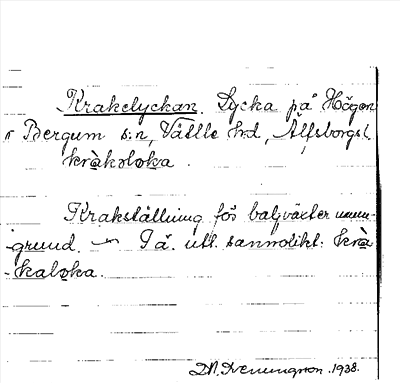 Krakelyckan. Lycka på Högen
i Bergum s:n, Vättle hd, Älfsborgs l.
kràkəlọka.
Krakställning för baljväxter namn-
grund. — I ä. utt. sannolikt: krà-
-kalọka.
D.N. Svenningson. 1938.